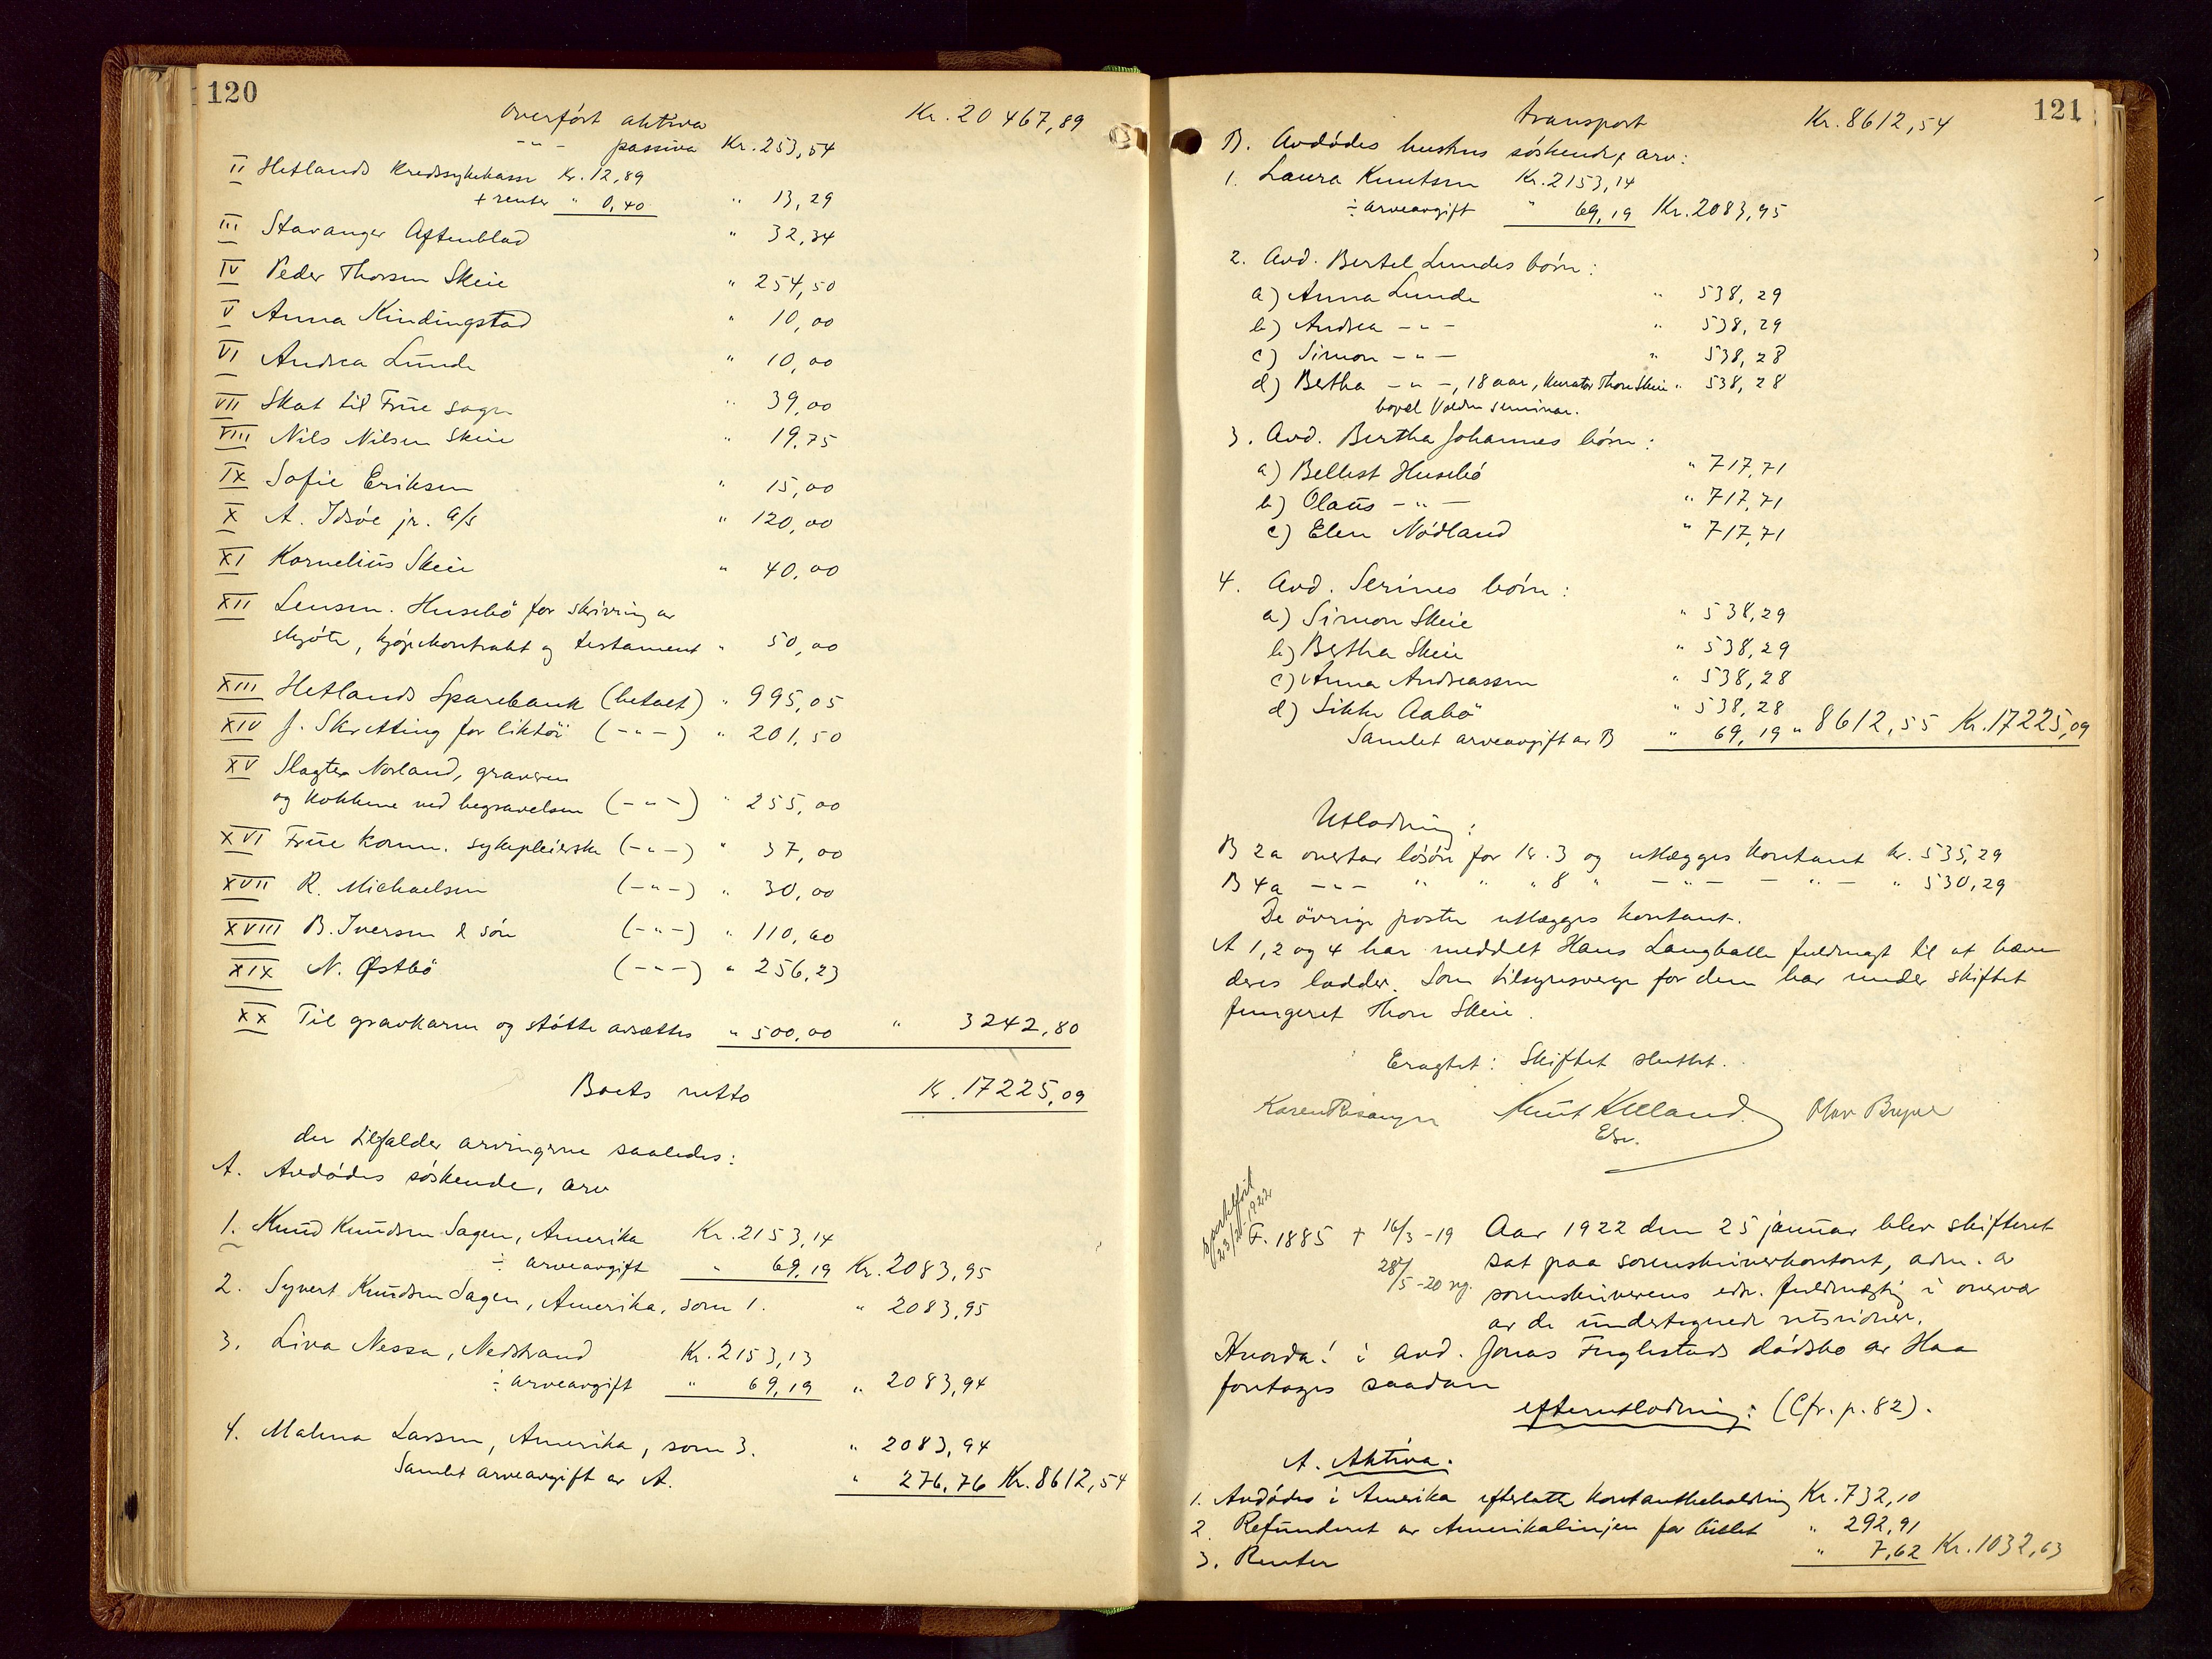 120
Overført aktiva Kr. 20467,89
-"- passiva Kr. 253,54
II Hetlands Kredssykekasse Kr. 12,89
+ renter " 0,40 " 13,29
III Stavanger Aftenblad " 32,34
IV Peder Thorsen Skeie " 254,50
V Anna Kindingstad " 10,00
VI Andrea Lunde " 10,00
VII Skat til Frue sogn " 39,00
VIII Nils Nilsen Skeie " 19,75
IX Sofie Eriksen " 15,00
X A. Idsøe jr. A/S " 120,00
XI Kornelius Skeie " 40,00
XII Lensm. Husebø for skrivning av
skjøte, kjøpekontrakt og testament " 50,00
XIII Hetlands Sparebank (betalt) " 995,05
XIV J. Skretting for liktøi (-"-) " 201,50
XV Slagter Norland, graveren
og kokkene ved begravelsen (-"-) " 255,00
XVI Frue komm. sykepleierske (-"-) " 37,00
XVII R. Michaelsen (-"-) " 30,00
XVIII B. Iversen & søn (-"-) " 110,60
XIX N. Østbø (-"-) " 256,23
XX Til gravkarm og støtte avsættes " 500,00 " 3242,80
Boets netto Kr. 17225,09
der tilfalder arvingerne saaledes:
A. Avdødes søskende, arv
1. Knud Knudsen Sagen, Amerika Kr. 2153,14
÷ arveavgift " 69,19 Kr. 2083,95
2. Syvert Knudsen Sagen, Amerika, som 1. " 2083,95
3. Liva Nessa, Nedstrand Kr. 2153,13
÷ arveavgift " 69,19 " 2083,94
4. Malena Larsen, Amerika, som 3. " 2083,94
Samlet arveavgift av A. " 276,76 Kr. 8612,54
121
transport Kr. 8612,54
B. Avdødes hustrus søskende, arv:
1. Laura Knutsen Kr. 2153,14
÷ arveavgift " 69,19 Kr. 2083,95
2. Avd. Bertel Lundes børn:
a) Anna Lunde " 538,29
b) Andrea -"- " 538,29
c) Simon -"- " 538,28
d) Bertha -"-, 18 aar, kurator Thore Skeie " 538,28
bopæl Volden seminar.
3. Avd. Bertha Johannes børn:
a) Bellest Husebø " 717,71
b) Olaus -"- " 717,71
c) Elen Nødland " 717,71
4. Avd. Serines børn:
a) Simon Skeie " 538,29
b) Bertha Skeie " 538,29
c) Anna Andreassen " 538,28
d) Sikke Aabø " 538,28
Samlet arveavgift av B " 69,19 " 8612,55 Kr. 17225,09
Utlodning:
B 2a overtar løsøre for kr. 3 og utlægges kontant kr. 535,29
B 4a -"- " " " 8 " -"- -"- " 530,29
De øvrige poster utlægges kontant.
A 1, 2 og 4 har meddelt Hans Langballe fuldmagt til at hæve
deres lodder. Som tilsynsverge for dem har under skiftet
fungeret Thore Skeie.
Eragtet: Skiftet sluttet.
Karen Risanger Knut Kielland Olav Bryne
Edv.
23/2 1922
F. 1885 + 16/3 -19 Aar 1922 den 25 januar blev skifteret
28/5 -20 rg. sat paa sorenskriverkontoret, adm. av
sorenskriverens edsv. fuldmægtig i overvær
av de undertegnede retsvidner.
Hvorda: i avd. Jonas Fuglestads dødsbo av Haa
foretages saadan
efterutlodning: (Cfr. p. 82).
A. Aktiva.
1. Avdødes i Amerika efterlatte kontantbeholdning Kr. 732,10
2. Refunderet av Amerikalinjen for billet " 292,91
3. Renter " 7,62 Kr. 1032,63